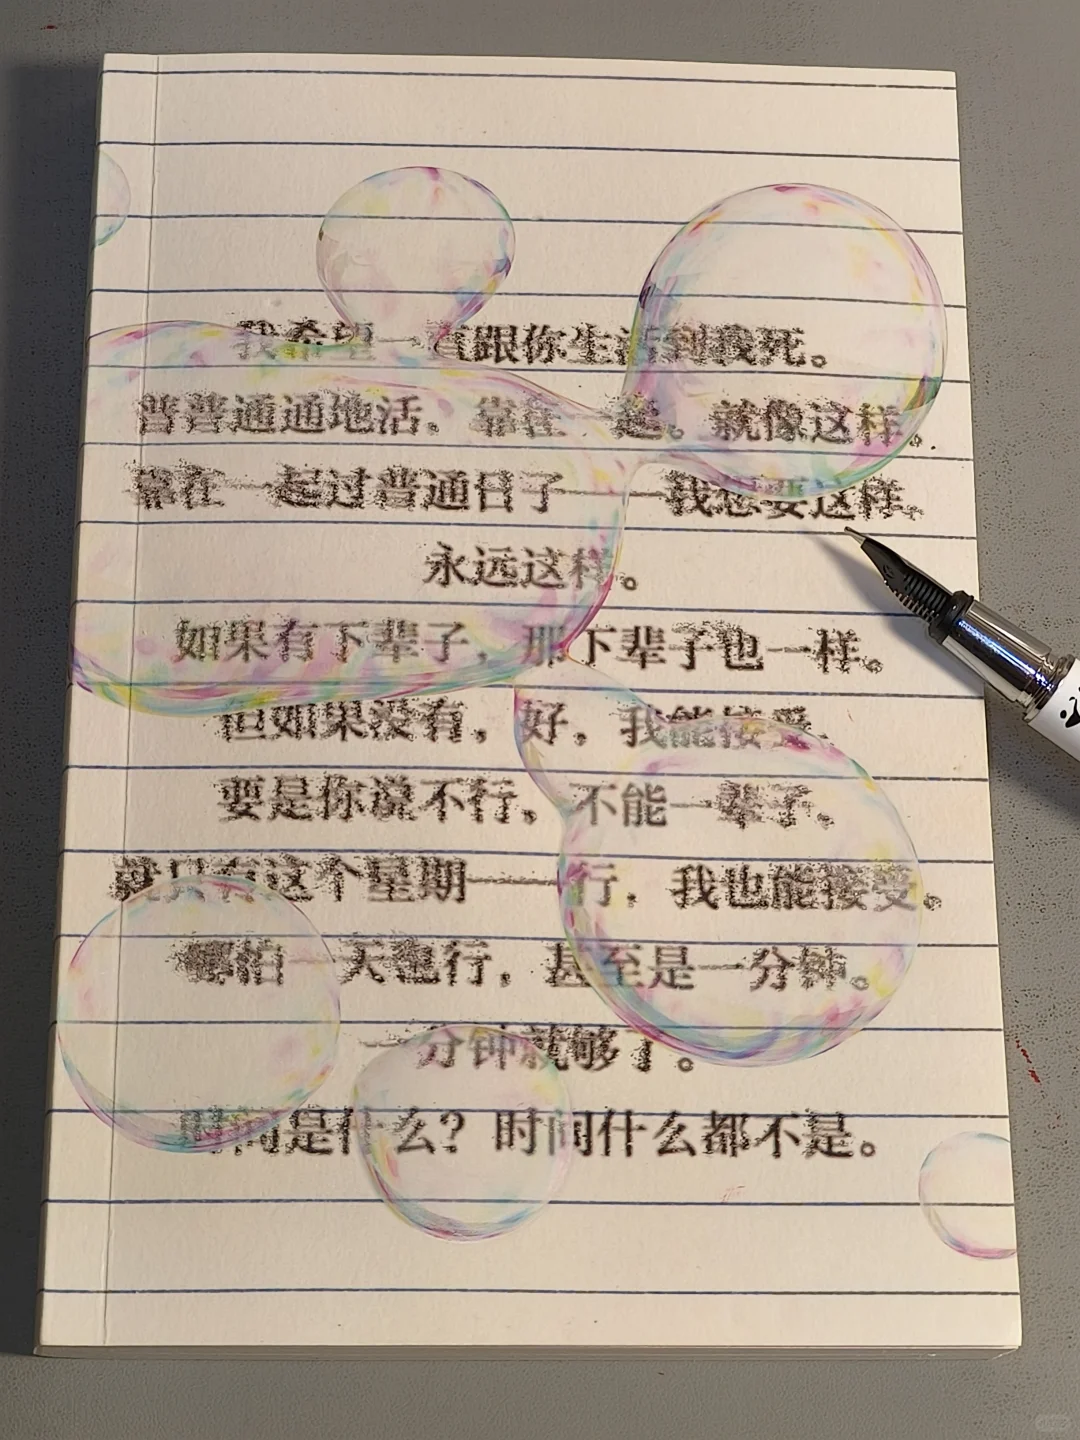 我希望一直跟你生活到我死。
普普通通地活，靠在一起。就像这样。
靠在一起过普通日子——我想要这样。
永远这样。
如果有下辈子，那下辈子也一样。
但如果没有，好，我能接受。
要是你说不行，不能一辈子，
就只有这个星期——行，我也能接受。
哪怕一天也行，甚至是一分钟。
一分钟就够了。
时间是什么？时间什么都不是。